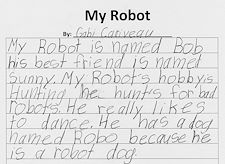 My Robot
By: Gabi Cariveau
My Robot is named Bob
his best friend is named
Sunny. My Robot's hobbyis
Hunting he hunts for bad
robots. He really likes
to dance. He has a dog
named Robo because he
is a robot dog.